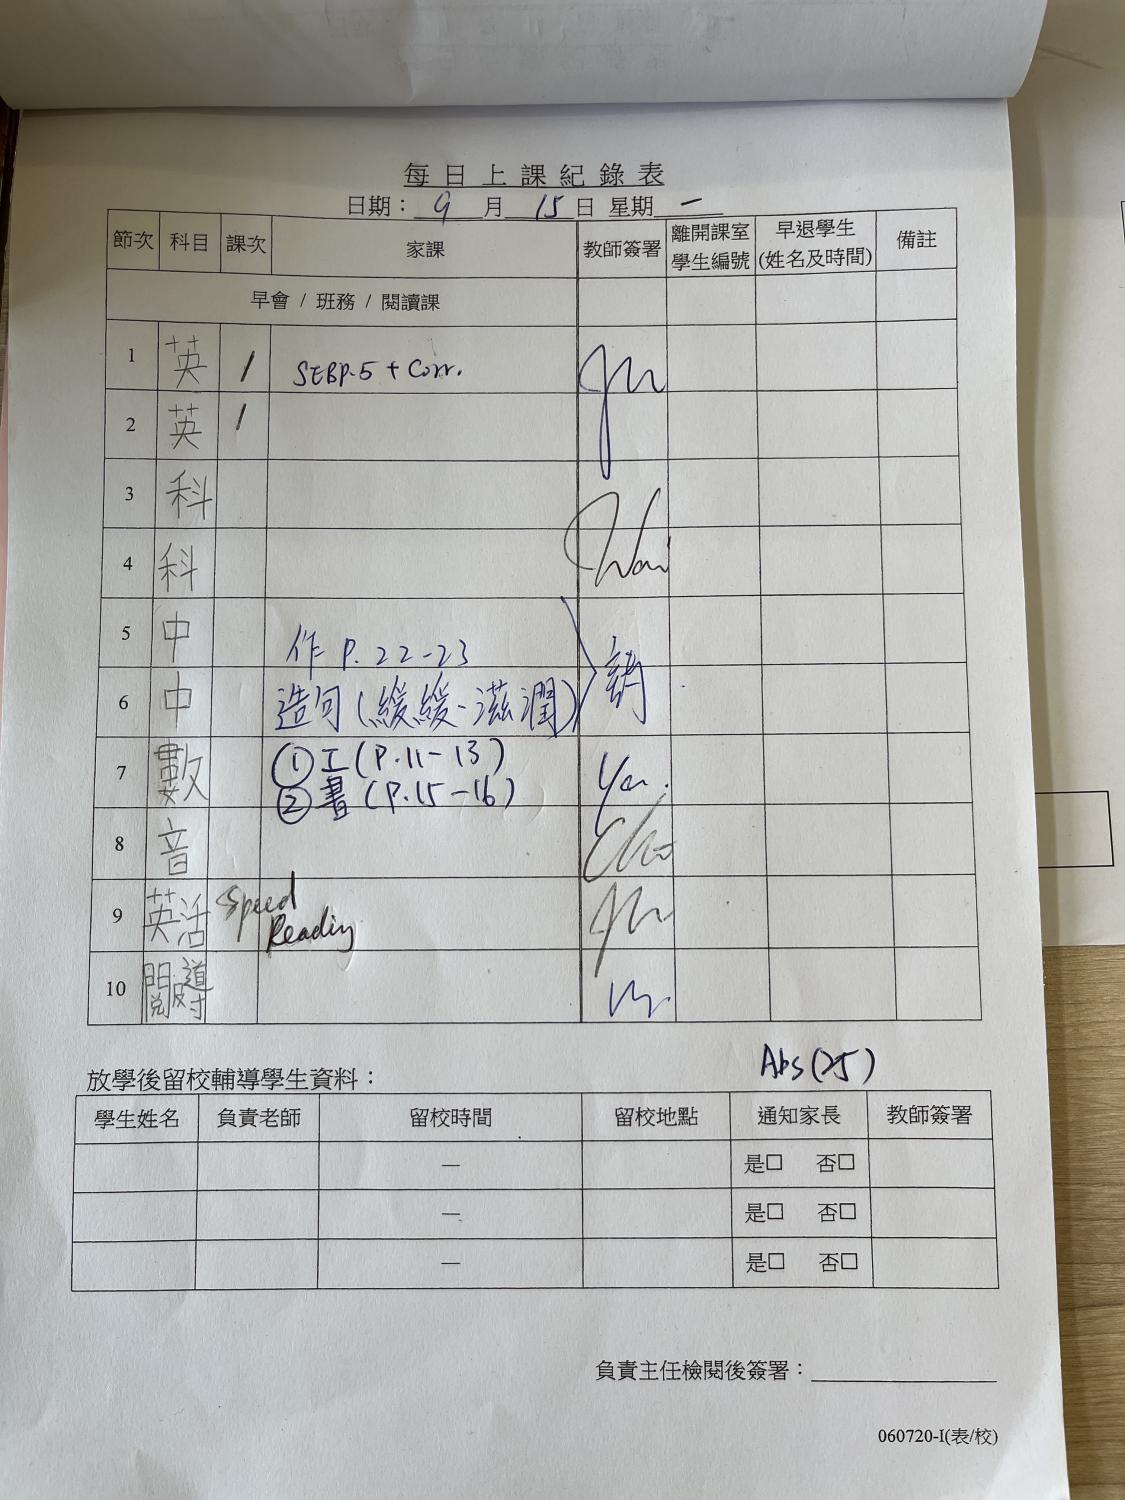 每日上課紀錄表
日期： 9 月 15 日 星期 一
節次 科目 課次 家課 教師簽署 離開課室學生編號 早退學生(姓名及時間) 備註
早會 / 班務 / 閱讀課
1 英 1 SEBP.5 + Corr.
2 英 1
3 科 Wai
4 科
5 中 作 P.22-23
6 中 造句(緩緩、滋潤)
7 數 ① 工(P.11-13)
② 書(P.15-16)
8 音
9 英活 Speed Reading
10 閱導
Abs(25)
放學後留校輔導學生資料：
學生姓名 負責老師 留校時間 留校地點 通知家長 教師簽署
— 是□ 否□
— 是□ 否□
— 是□ 否□
負責主任檢閱後簽署：
060720-I(表/校)